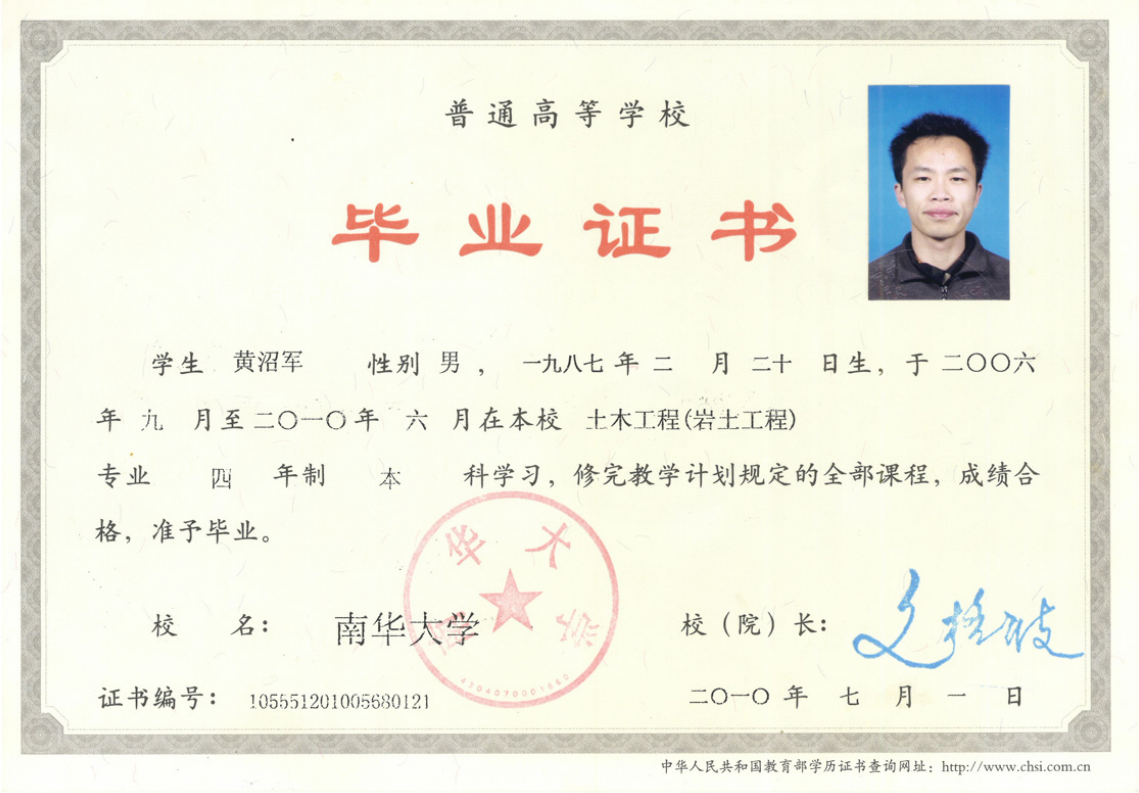 普通高等学校
毕业证书
学生 黄沼军 性别 男 ， 一九八七 年 二 月 二十 日生，于 二〇〇六
年 九 月至 二〇一〇 年 六 月在本校 土木工程(岩土工程)
专业 四 年制 本 科学习，修完教学计划规定的全部课程，成绩合
格，准予毕业。
南华大学
校 名： 南华大学
校（院）长：
证书编号： 105551201005680121
二〇一〇 年 七 月 一 日
中华人民共和国教育部学历证书查询网址：http://www.chsi.com.cn